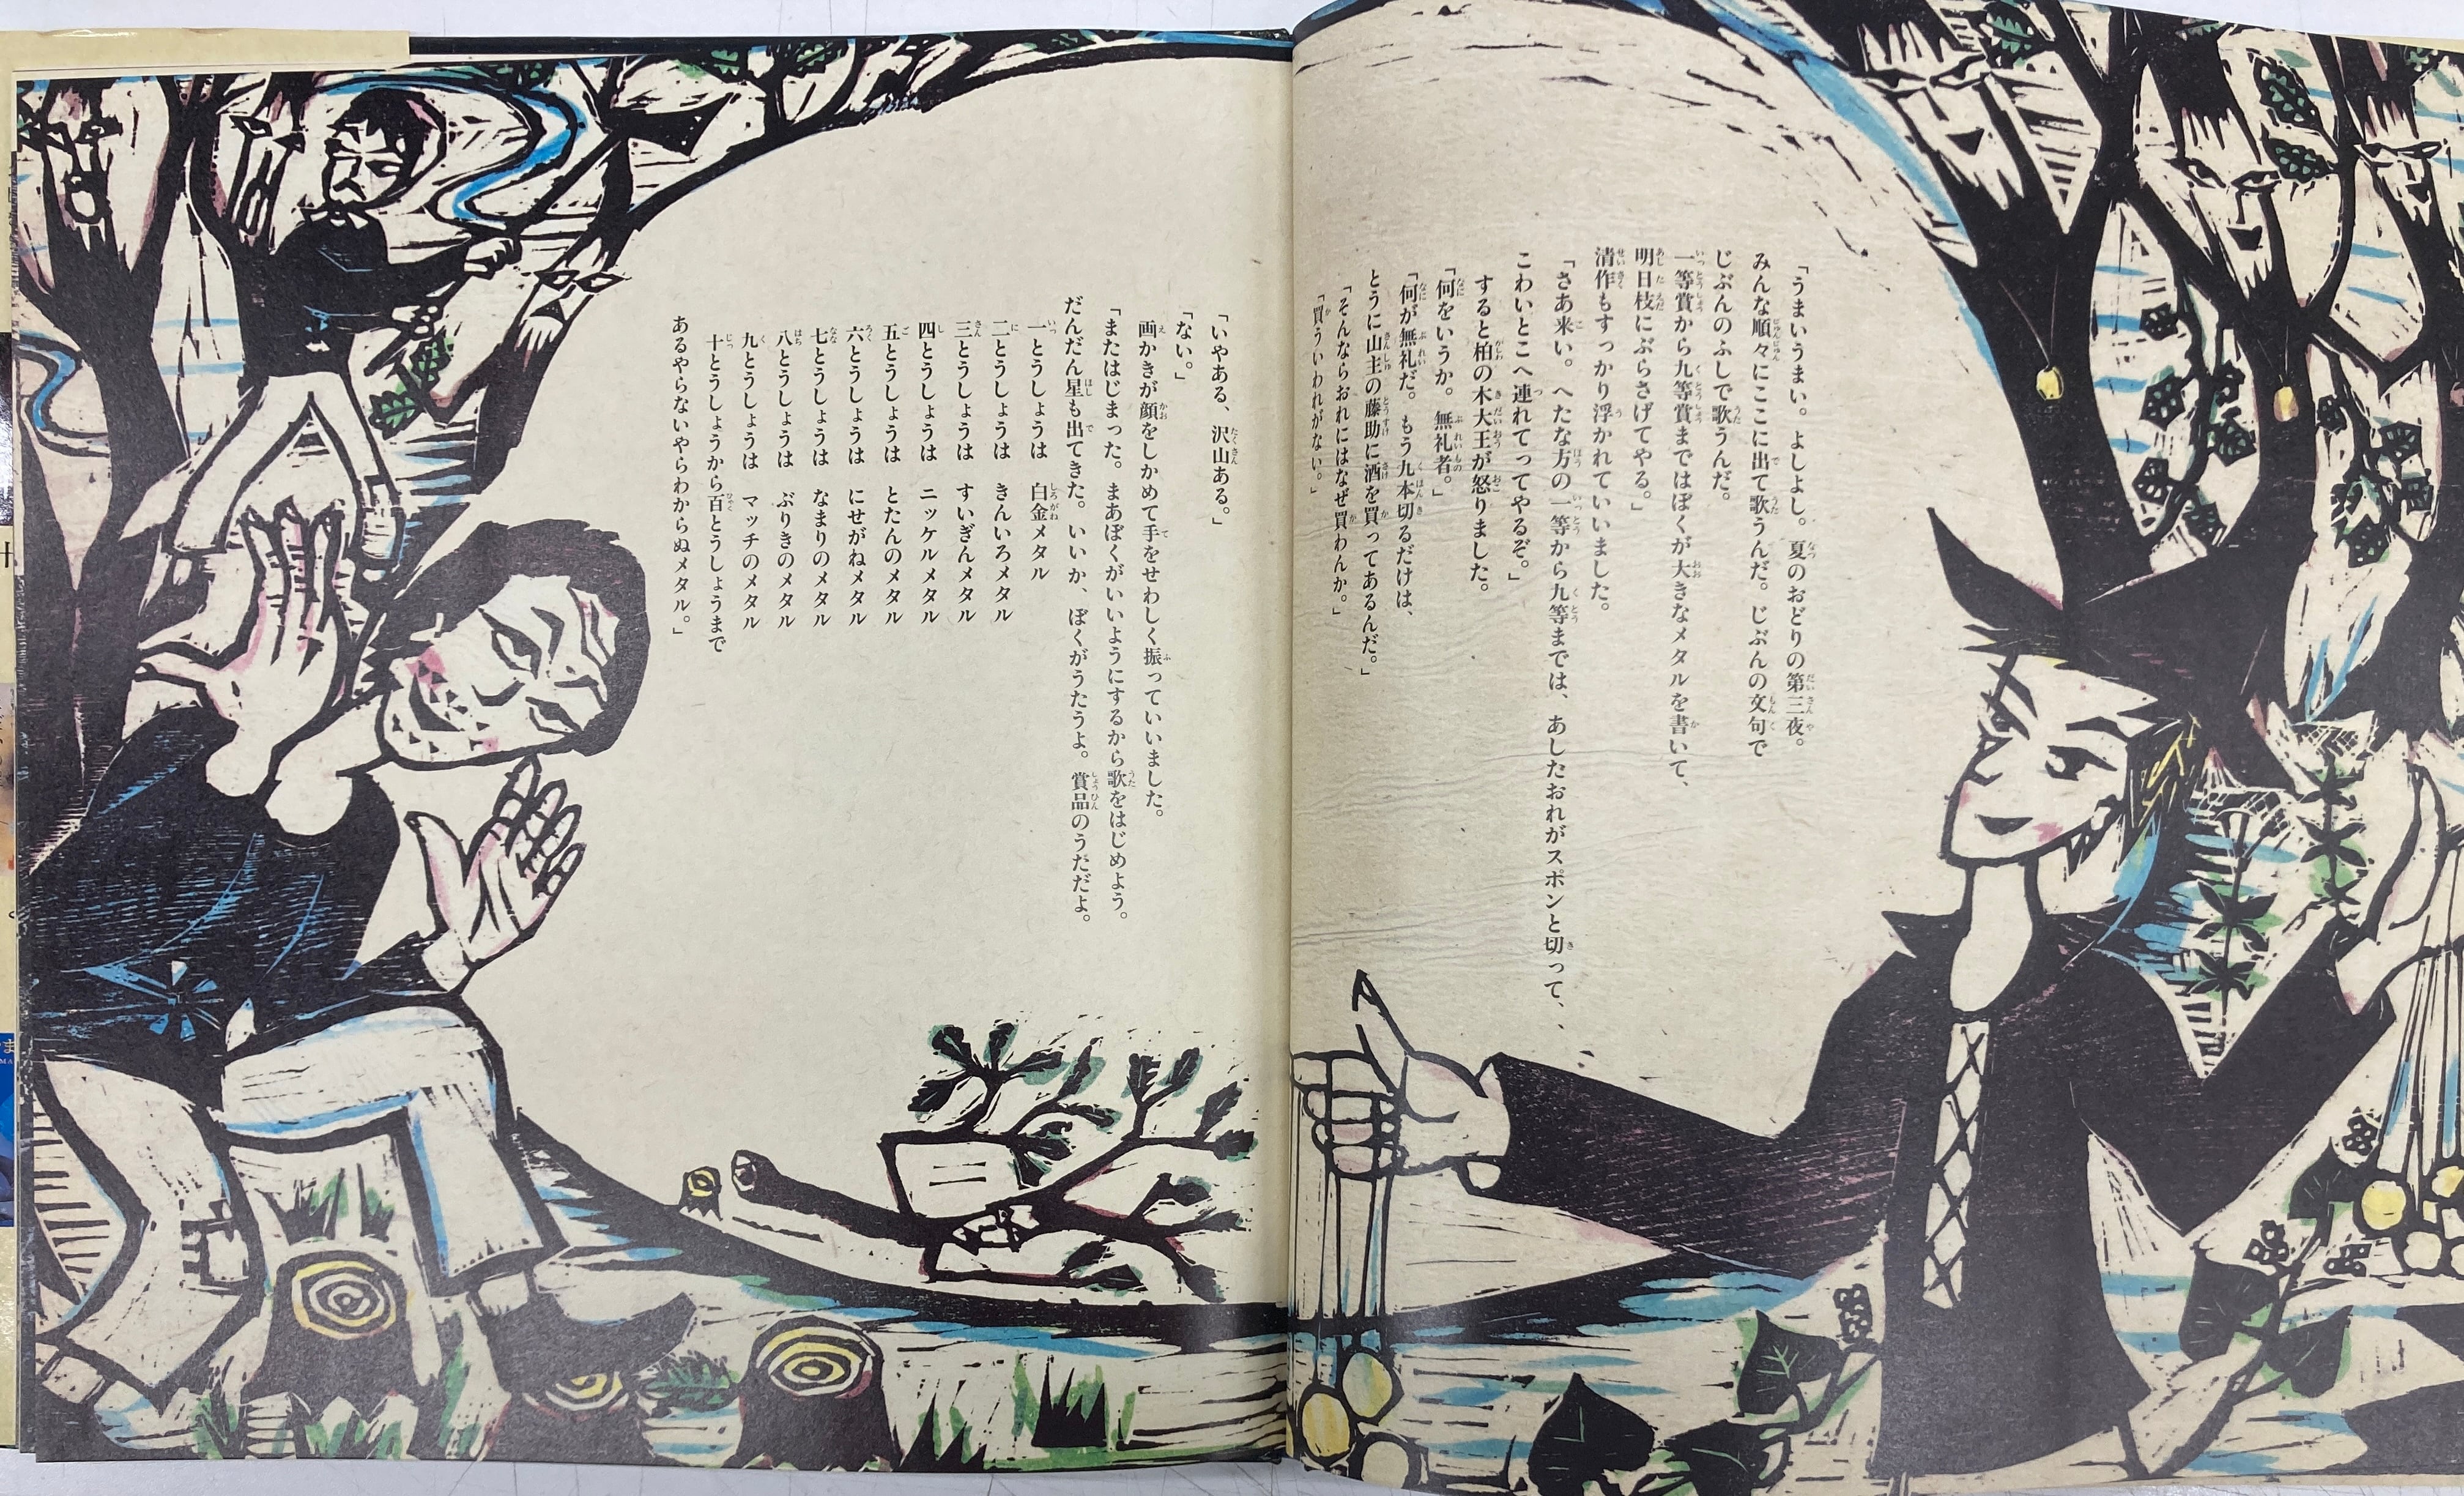 「うまいうまい。よしよし。夏のおどりの第三夜。
みんな順々にここに出て歌うんだ。じぶんの文句で
じぶんのふしで歌うんだ。
一等賞から九等賞まではぼくが大きなメタルを書いて、
明日枝にぶらさげてやる。」
清作もすっかり浮かれていいました。
「さあ来い。へたな方の一等から九等までは、あしたおれがスポンと切って、
こわいとこへ連れてってやるぞ。」
すると柏の木大王が怒りました。
「何をいうか。無礼者。」
「何が無礼だ。もう九本切るだけは、
とうに山主の藤助に酒を買ってあるんだ。」
「そんならおれにはなぜ買わんか。」
「買ういわれがない。」
「いやある、沢山ある。」
「ない。」
画かきが顔をしかめて手をせわしく振っていいました。
「またはじまった。まあぼくがいいようにするから歌をはじめよう。
だんだん星も出てきた。いいか、ぼくがうたうよ。賞品のうただよ。
一とうしょうは 白金メタル
二とうしょうは きんいろメタル
三とうしょうは すいぎんメタル
四とうしょうは ニッケルメタル
五とうしょうは とたんのメタル
六とうしょうは にせがねメタル
七とうしょうは なまりのメタル
八とうしょうは ぶりきのメタル
九とうしょうは マッチのメタル
十とうしょうから百とうしょうまで
あるやらないやらわからぬメタル。」
二